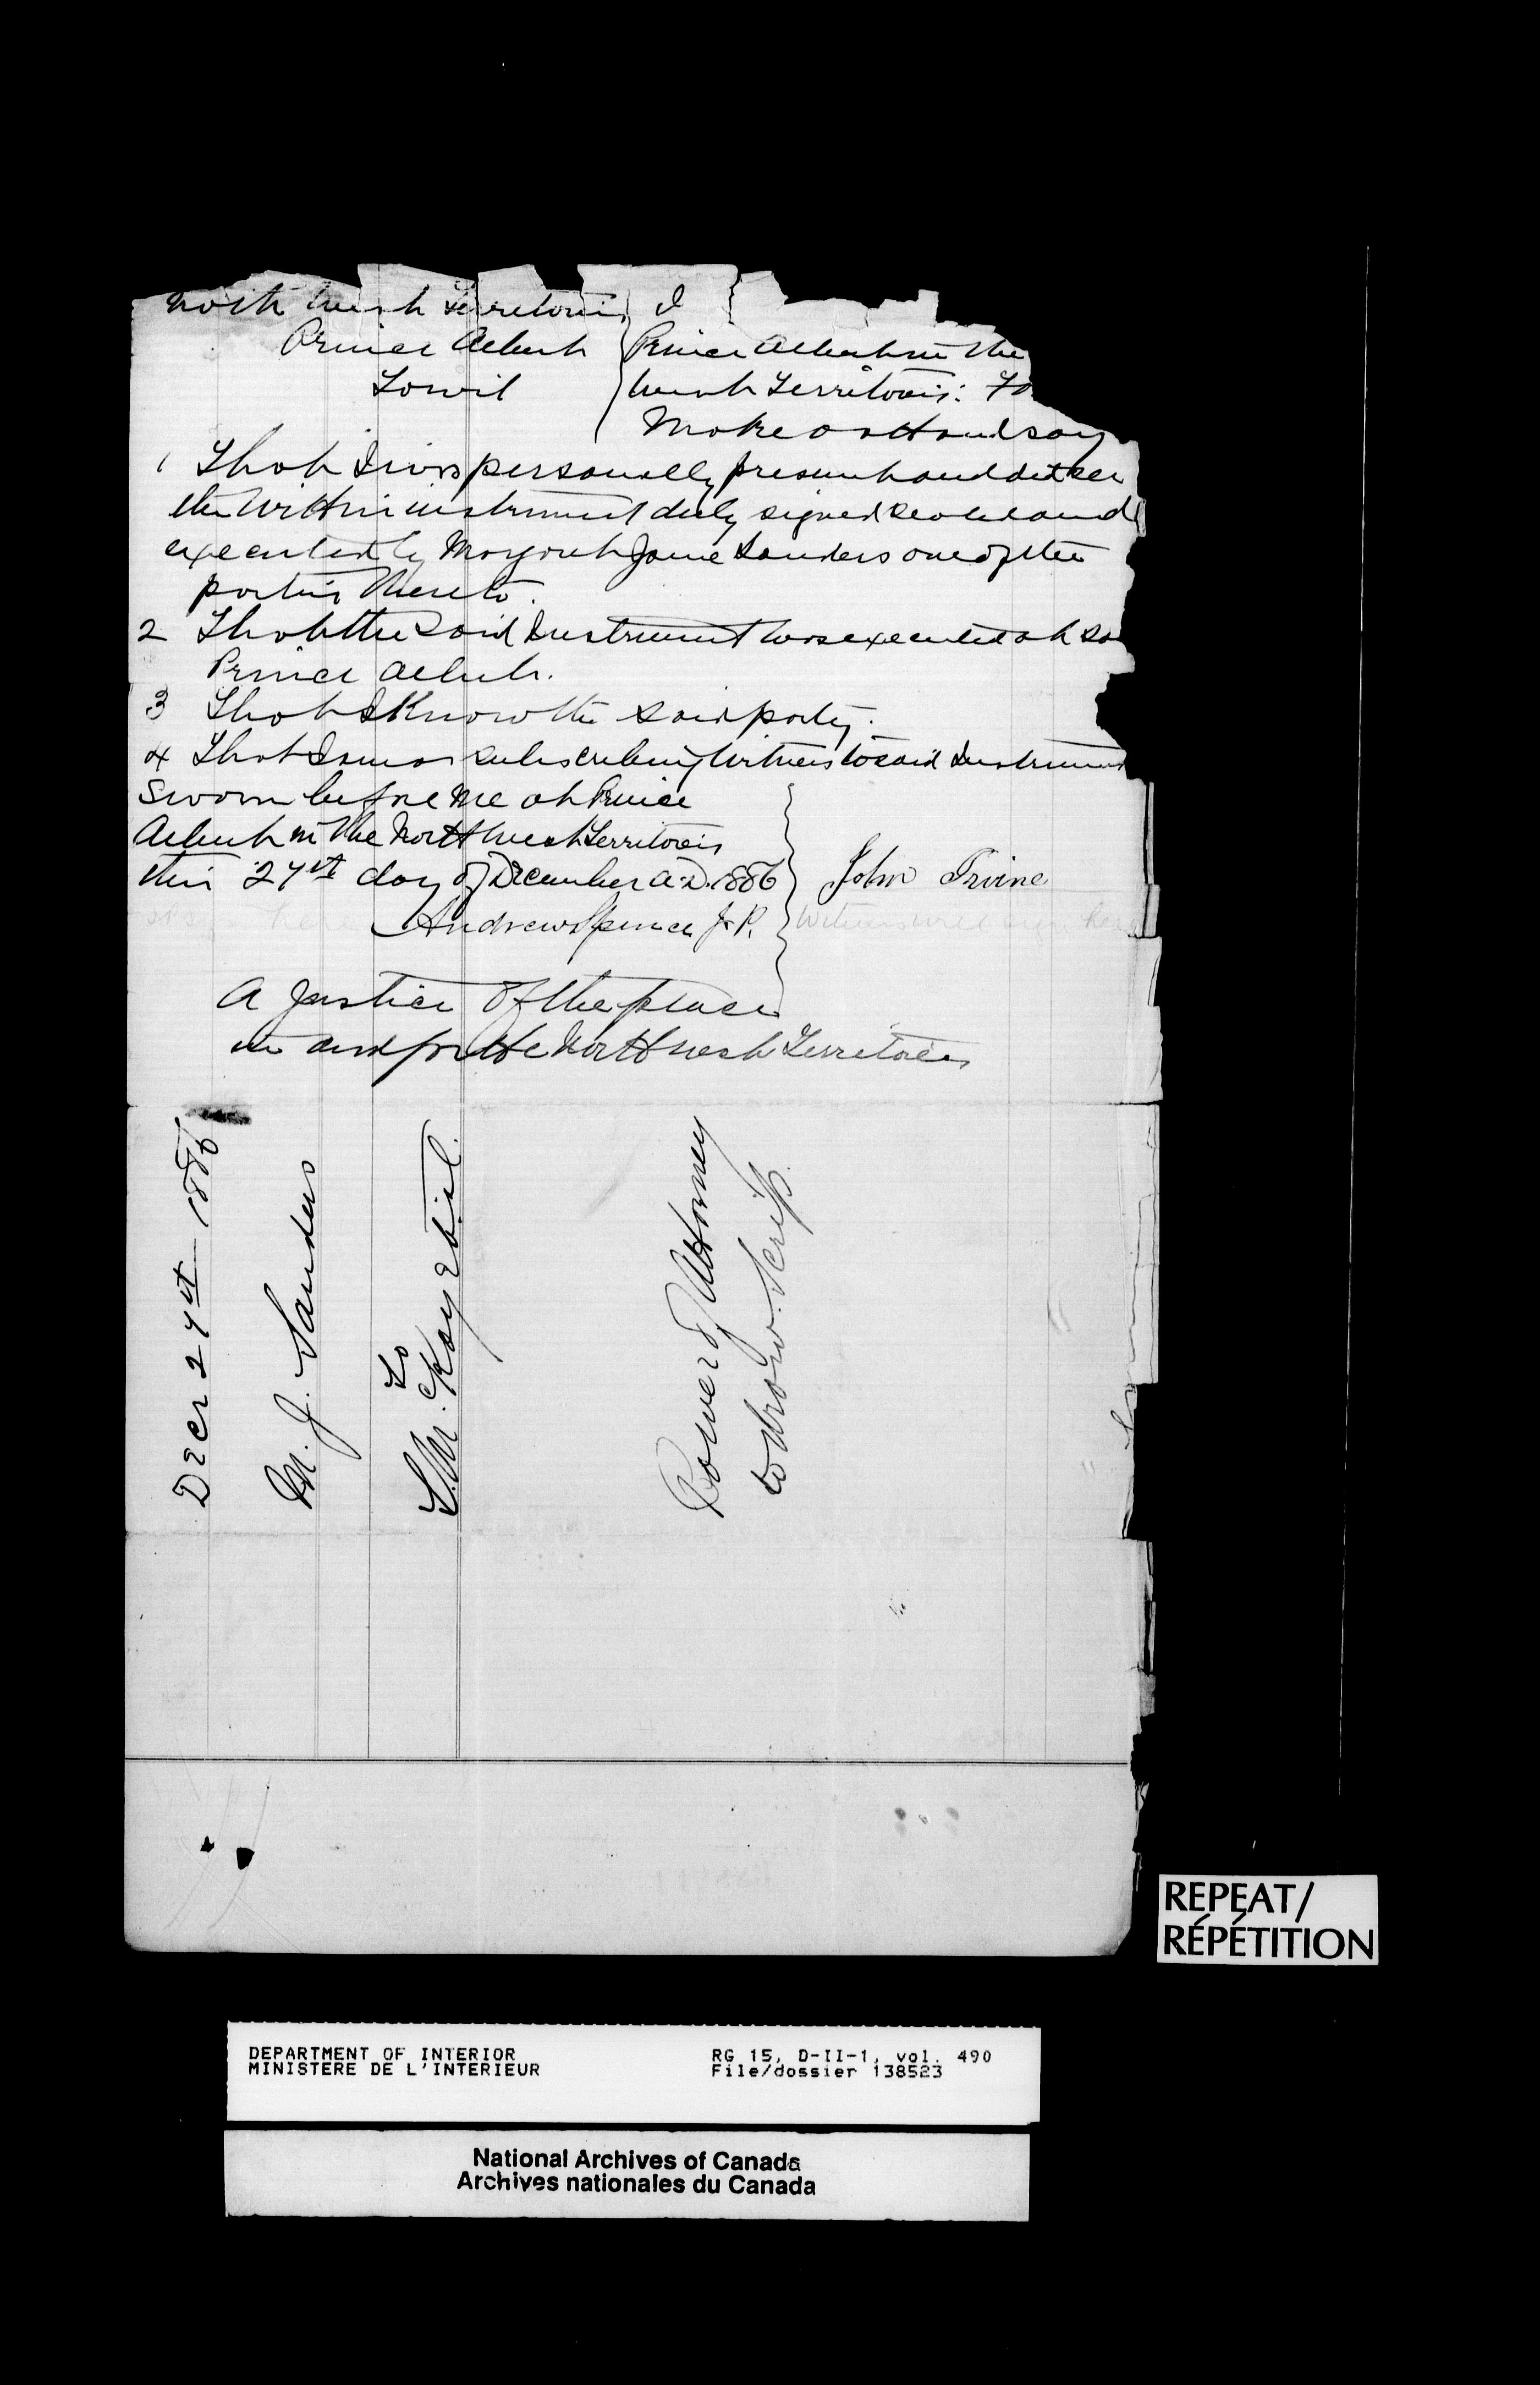 North West Territories I
Prince Albert Prince Albert in the
To wit West Territories: To
Make oath and say
1 That I was personally present and did see
the within instrument duly signed sealed and
executed by Margaret Jane Sanders one of the
parties thereto.
2 That the said Instrument was executed at sa
Prince Albert.
3 That I Know the said party.
4 That I am a subscribing Witness to said Instrument
Sworn before Me at Prince
Albert in the North West Territories
this 27th day of December A.D. 1886 John Irvine
sign here Andrew Spence J.P. Witness will sign here
A Justice of the peace
in and for the North west Territories
Decr 27th 1886
M. J. Sanders
To
Power of Attorney
to draw Scrip.
REPEAT/
RÉPÉTITION
DEPARTMENT OF INTERIOR RG 15, D-II-1, vol. 490
MINISTERE DE L'INTERIEUR File/dossier 138523
National Archives of Canada
Archives nationales du Canada